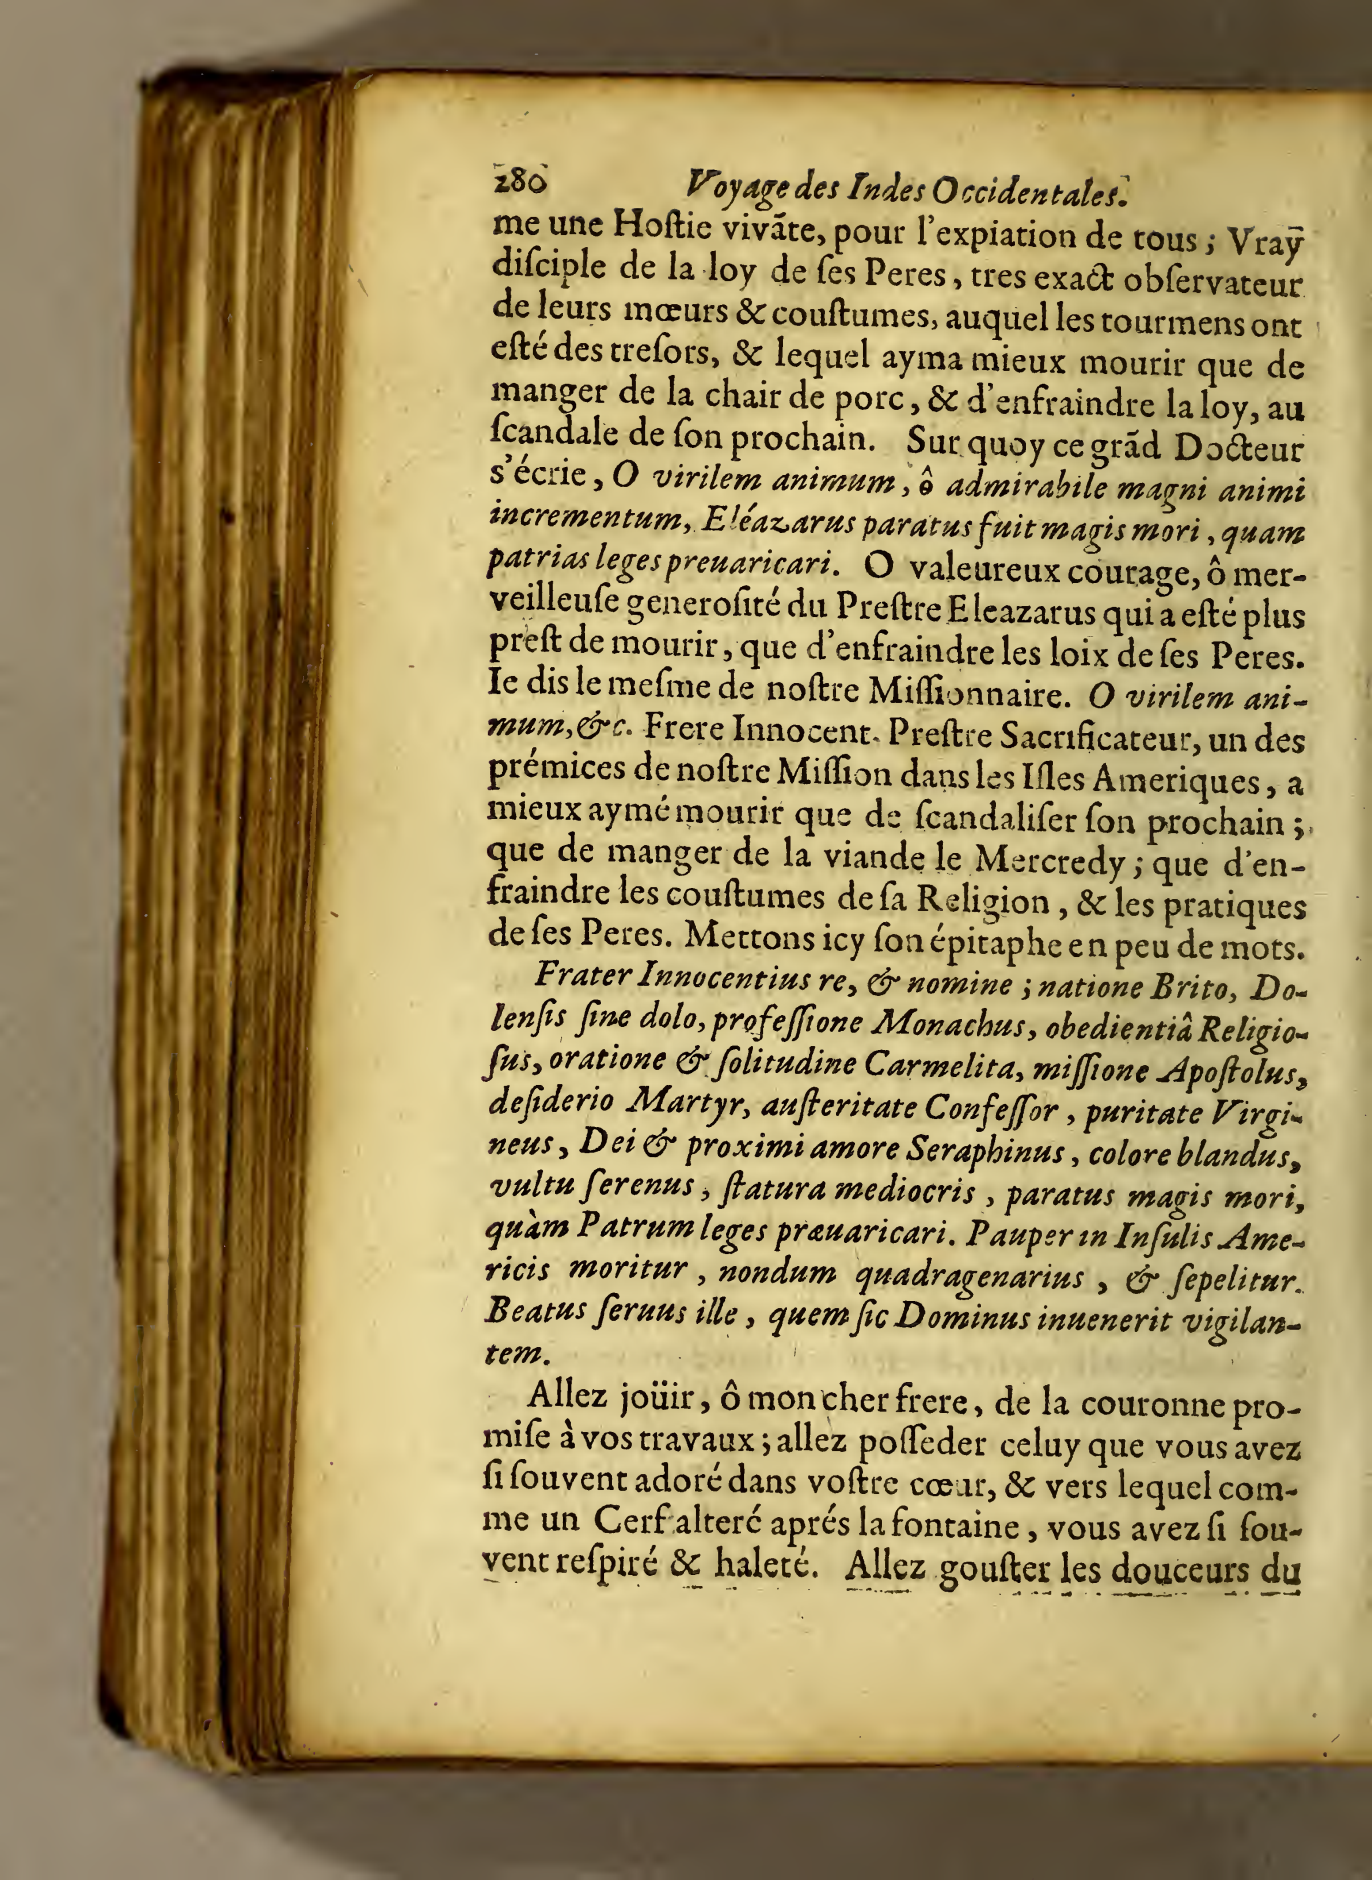 280 Voyage des Indes Occidentales.
me une Hoſtie vivãte, pour l'expiation de tous ; Vray
diſciple de la loy de ſes Peres, tres exact obſervateur
de leurs mœurs & couſtumes, auquel les tourmens ont
eſté des treſors, & lequel ayma mieux mourir que de
manger de la chair de porc, & d'enfraindre la loy, au
ſcandale de ſon prochain. Sur quoy ce grãd Docteur
s'écrie, O virilem animum, ô admirabile magni animi
incrementum, Eléazarus paratus fuit magis mori, quam
patrias leges preuaricari. O valeureux courage, ô mer-
veilleuſe generoſité du Preſtre Eleazarus qui a eſté plus
preſt de mourir, que d'enfraindre les loix de ſes Peres.
Ie dis le meſme de noſtre Miſſionnaire. O virilem ani-
mum, &c. Frere Innocent. Preſtre Sacrificateur, un des
prémices de noſtre Miſſion dans les Iſles Ameriques, a
mieux aymé mourir que de ſcandaliſer ſon prochain ;
que de manger de la viande le Mercredy ; que d'en-
fraindre les couſtumes de ſa Religion, & les pratiques
de ſes Peres. Mettons icy ſon épitaphe en peu de mots.
Frater Innocentius re, & nomine ; natione Brito, Do-
lenſis ſine dolo, profeſſione Monachus, obedientiâ Religio-
ſus, oratione & ſolitudine Carmelita, miſſione Apoſtolus,
deſiderio Martyr, auſteritate Confeſſor, puritate Virgi-
neus, Dei & proximi amore Seraphinus, colore blandus,
vultu ſerenus, ſtatura mediocris, paratus magis mori,
quàm Patrum leges præuaricari. Pauper in Inſulis Ame-
ricis moritur, nondum quadragenarius, & ſepelitur.
Beatus ſeruus ille, quem ſic Dominus inuenerit vigilan-
tem.
Allez joüir, ô mon cher frere, de la couronne pro-
miſe à vos travaux ; allez poſſeder celuy que vous avez
ſi ſouvent adoré dans voſtre cœur, & vers lequel com-
me un Cerf alteré aprés la fontaine, vous avez ſi ſou-
vent reſpiré & haleté. Allez gouſter les douceurs du